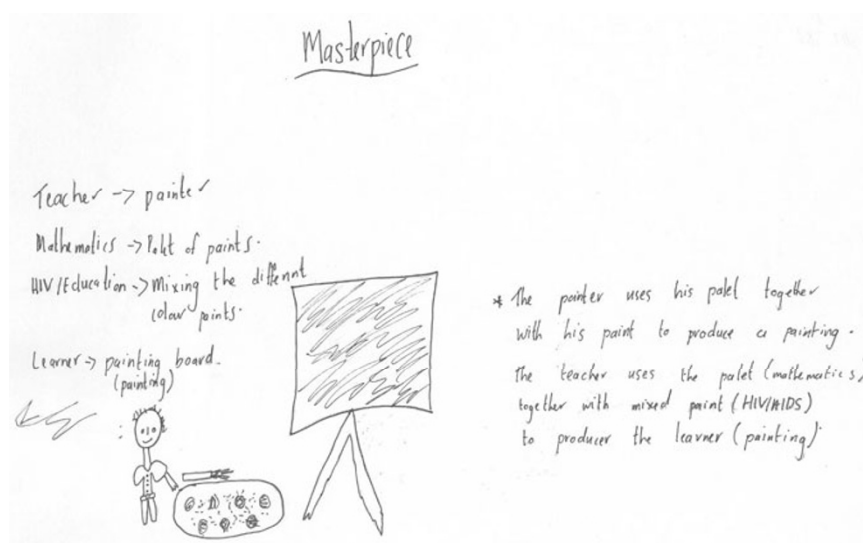 Masterpiece
Teacher -> painter
Mathematics -> Palet of paints.
HIV/Education -> Mixing the different
colour paints.
Learner -> painting board.
(painting)
* The painter uses his palet together
with his paint to produce a painting.
The teacher uses the palet (mathematics)
together with mixed paint (HIV/AIDS)
to producer the learner (painting).